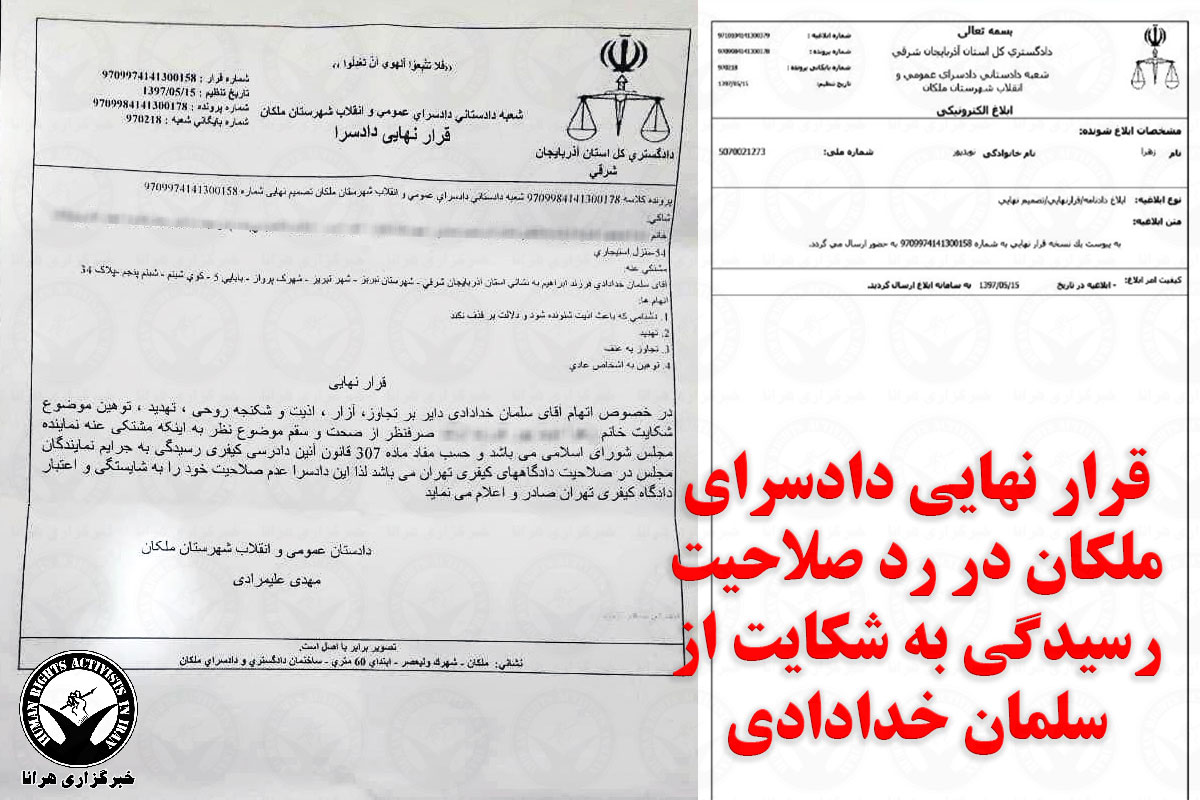 «فلا تتبعوا الهوي أن تعدلوا»
شماره قرار : 9709974141300158
تاریخ تنظیم : 1397/05/15
شماره پرونده : 9709984141300178
شماره بایگاني شعبه : 970218
شعبه دادستاني دادسراي عمومي و انقلاب شهرستان ملکان
قرار نهایي دادسرا
دادگستري کل استان آذربایجان
شرقي
پرونده کلاسه 9709984141300178 شعبه دادستاني دادسراي عمومي و انقلاب شهرستان ملکان تصمیم نهایی شماره 9709974141300158
شاکي:
خانم
54-منزل استیجاري
مشتکي عنه:
آقاي سلمان خدادادي فرزند ابراهیم به نشاني استان آذربایجان شرقي - شهرستان تبریز - شهر تبریز - شهرک پرواز - بابایي 5 - کوي شبنم - شبنم پنجم -پلاک 34
اتهام ها:
1. دشنامي که باعث اذیت شنونده شود و دلالت بر قذف نکند
2. تهدید
3. تجاوز به عنف
4. توهین به اشخاص عادي
قرار نهایی
در خصوص اتهام آقای سلمان خدادادی دایر بر تجاوز، آزار ، اذیت و شکنجه روحی ، تهدید ، توهین موضوع
شکایت خانم صرفنظر از صحت و سقم موضوع نظر به اینکه مشتکی عنه نماینده
مجلس شورای اسلامی می باشد و حسب مفاد ماده 307 قانون آئین دادرسی کیفری رسیدگی به جرایم نمایندگان
مجلس در صلاحیت دادگاههای کیفری تهران می باشد لذا این دادسرا عدم صلاحیت خود را به شایستگی و اعتبار
دادگاه کیفری تهران صادر و اعلام می نماید
دادستان عمومی و انقلاب شهرستان ملکان
مهدی علیمرادی
تصویر برابر با اصل است.
نشاني: ملکان - شهرک ولیعصر - ابتداي 60 متري - ساختمان دادگستري و دادسراي ملکان
HUMAN RIGHTS ACTIVISTS IN IRAN
خبرگزاری هرانا
بسمه تعالی
دادگستري کل استان آذربایجان شرقي
شعبه دادستاني دادسراي عمومي و
انقلاب شهرستان ملکان
ابلاغ الکترونیکی
شماره ابلاغیه :
شماره پرونده : 9709984141300178
شماره بایگاني پرونده : 970218
تاریخ تنظیم: 1397/05/15
مشخصات ابلاغ شونده:
نام زهرا نام خانوادگی نویدپور شماره ملی: 5070021273
نوع ابلاغیه: ابلاغ دادنامه/قرارنهایی/تصمیم نهایي
متن ابلاغیه:
به پیوست یك نسخه قرار نهایي به شماره 9709974141300158 به حضور ارسال مي گردد.
کیفیت امر ابلاغ: - ابلاغیه در تاریخ 1397/05/15 به سامانه ابلاغ ارسال گردید.
قرار نهایی دادسرای
ملکان در رد صلاحیت
رسیدگی به شکایت از
سلمان خدادادی